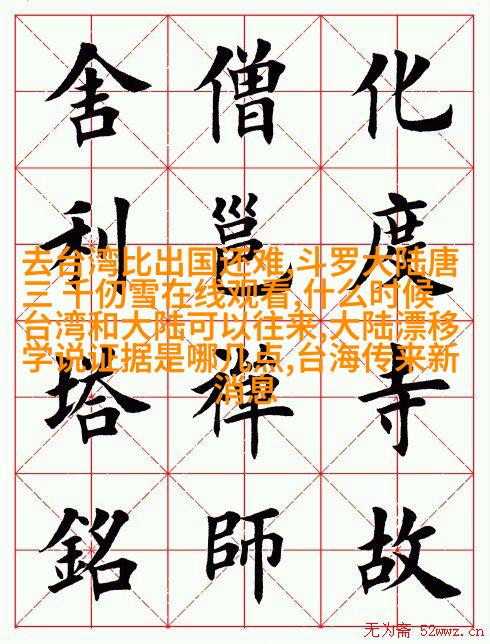 化度寺故
僧邕禪師
舍利塔銘
去台湾比出国还难,斗罗大陆唐
三 千仞雪在线观看,什么时候
台湾和大陆可以往来,大陆漂移
学说证据是哪几点,台海传来新
消息
无为斋 52wwz.cn